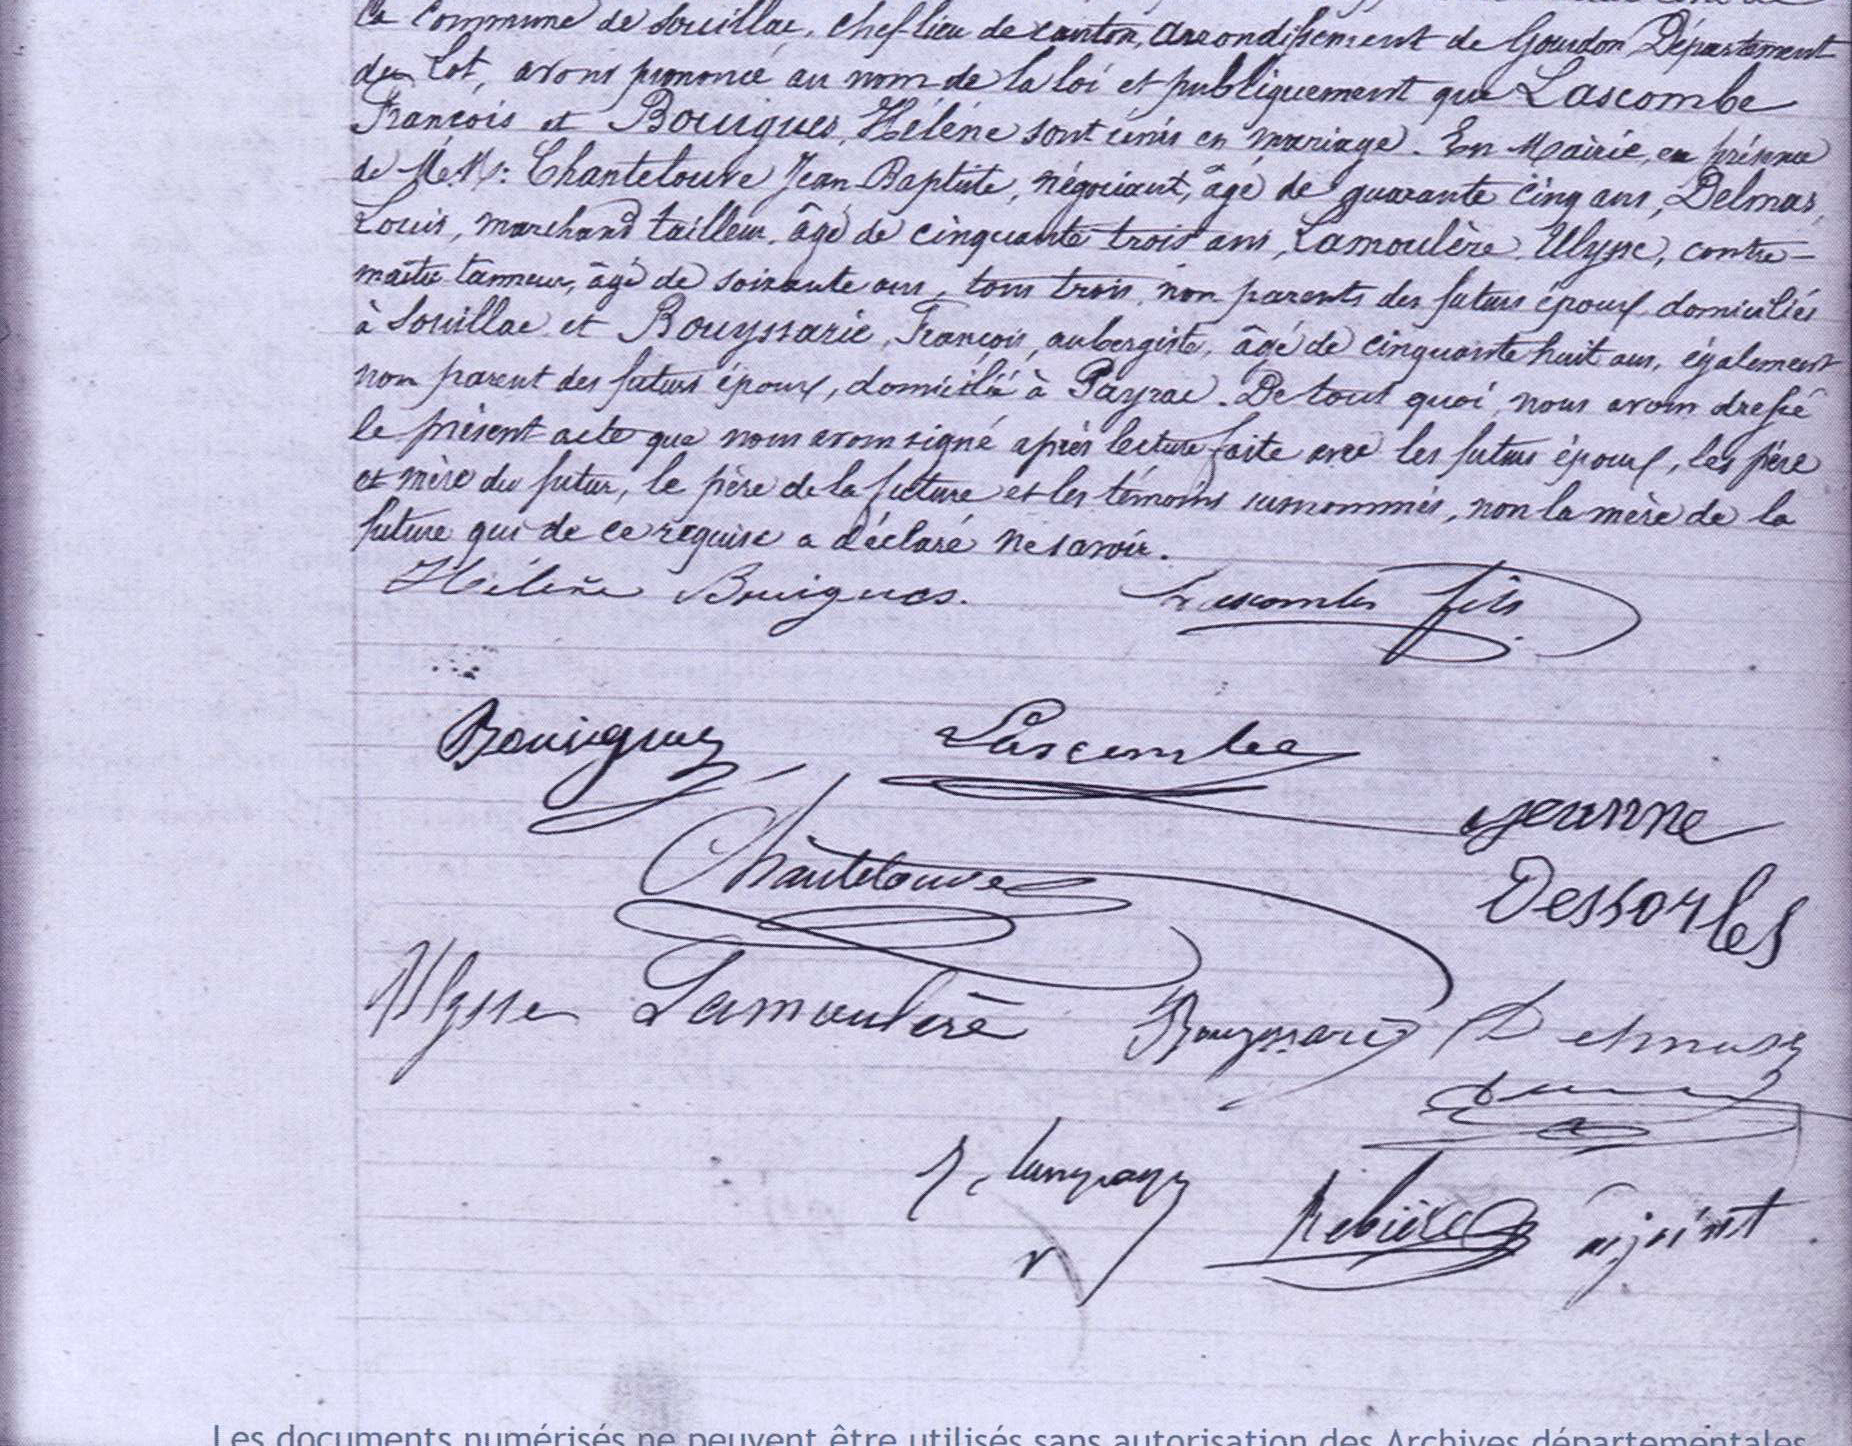 la Commune de Souillac, chef-lieu de canton, arrondissement de Gourdon, Département
du Lot, avons prononcé au nom de la loi et publiquement que Lascombe
François et Bouigues, Hélène sont unis en mariage. En Mairie, en présence
de M.M.rs Chantelouve Jean-Baptiste, négociant, âgé de quarante cinq ans, Delmas,
Louis, marchand tailleur, âgé de cinquante trois ans, Lamoulère Ulysse, contre-
maître tanneur, âgé de soixante ans, tous trois, non parents des futurs époux, domiciliés
à Souillac et Bouyssarie, François, aubergiste, âgé de cinquante huit ans, également
non parent des futurs époux, domicilié à Payrac. De tout quoi, nous avons dressé
le présent acte que nous avons signé après lecture faite avec les futurs époux, les père
et mère du futur, le père de la future et les témoins susnommés, non la mère de la
future qui de ce requise a déclaré ne savoir.
Hélène Bouigues. Lascombe fils
Bouigues Lascombe
Jeanne
Chantelouve
Dessorles
Ulysse Lamoulère Bouyssarie Delmas
Rebière adjoint
Les documents numérisés ne peuvent être utilisés sans autorisation des Archives départementales